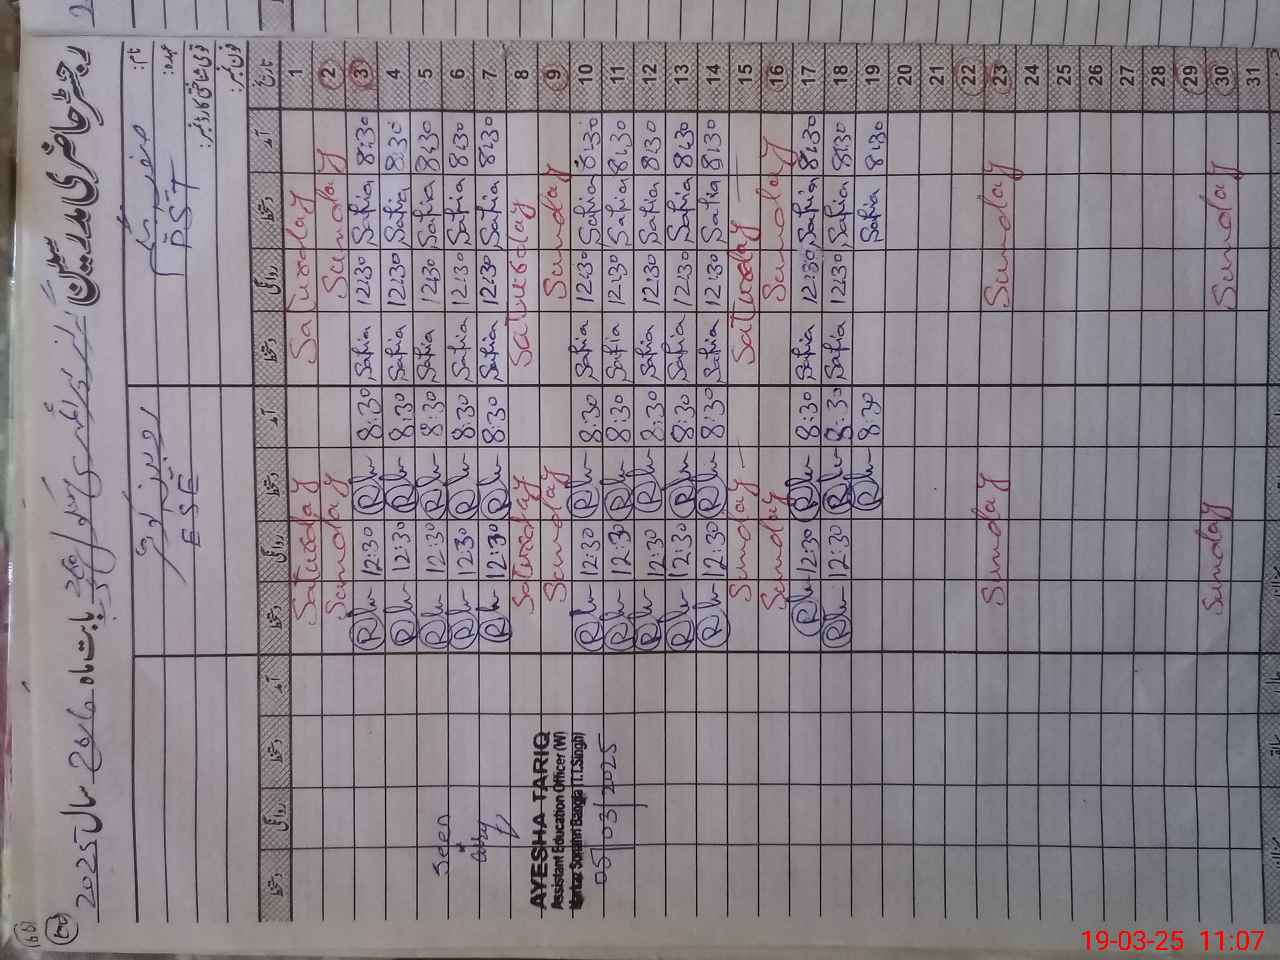 رجسٹر حاضری مدرسین
بابت ماہ مارچ سال 2025
نام:
عہدہ: PST ESE
تاریخ آمد دستخط روانگی دستخط آمد دستخط روانگی دستخط آمد دستخط روانگی دستخط
1 Saturday Saturday
2 Sunday Sunday
3 8:30 Safia 12:30 Safia 8:30 12:30
4 8:30 Safia 12:30 Safia 8:30 12:30
5 8:30 Safia 12:30 Safia 8:30 12:30 Seen
6 8:30 Safia 12:30 Safia 8:30 12:30
7 8:30 Safia 12:30 Safia 8:30 12:30
8 Saturday Saturday
9 Sunday Sunday
10 8:30 Safia 12:30 Safia 8:30 12:30
11 8:30 Safia 12:30 Safia 8:30 12:30
12 8:30 Safia 12:30 Safia 8:30 12:30
13 8:30 Safia 12:30 Safia 8:30 12:30
14 8:30 Safia 12:30 Safia 8:30 12:30
15 Saturday Sunday
16 Sunday Sunday
17 8:30 Safia 12:30 Safia 8:30 12:30
18 8:30 Safia 12:30 Safia 8:30 12:30
19 8:30 Safia 8:30
20
21
22
23 Sunday Sunday
24
25
26
27
28
29
30 Sunday Sunday
31
AYESHA TARIQ
Assistant Education Officer (W)
Markaz Bangla (T.T.Singh)
05/03/2025
19-03-25 11:07